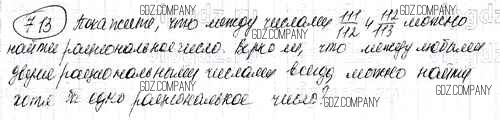 GDZ.COMPANY
713 Докажите, что между числами 111/112 и 112/113 можно
GDZ.COMPANY
найти рациональное число. Верно ли, что между любыми
двумя рациональными числами всегда можно найти
GDZ.COMPANY
хотя бы одно рациональное число?
GDZ.COMPANY
GDZ.COMPANY